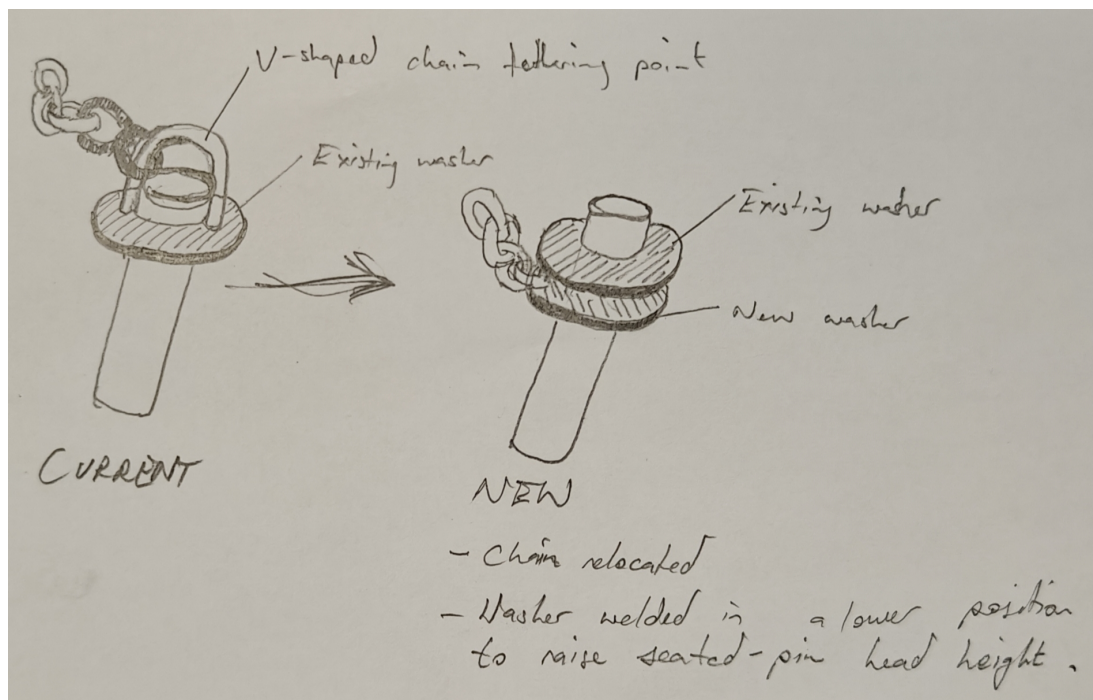 V-shaped chain tethering point
Existing washer
Existing washer
New washer
CURRENT
NEW
- Chain relocated
- Washer welded in a lower position
to raise seated-pin head height.